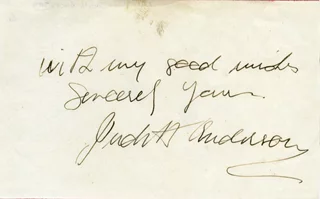 with my good wishes
Sincerely Yours
Judith Anderson